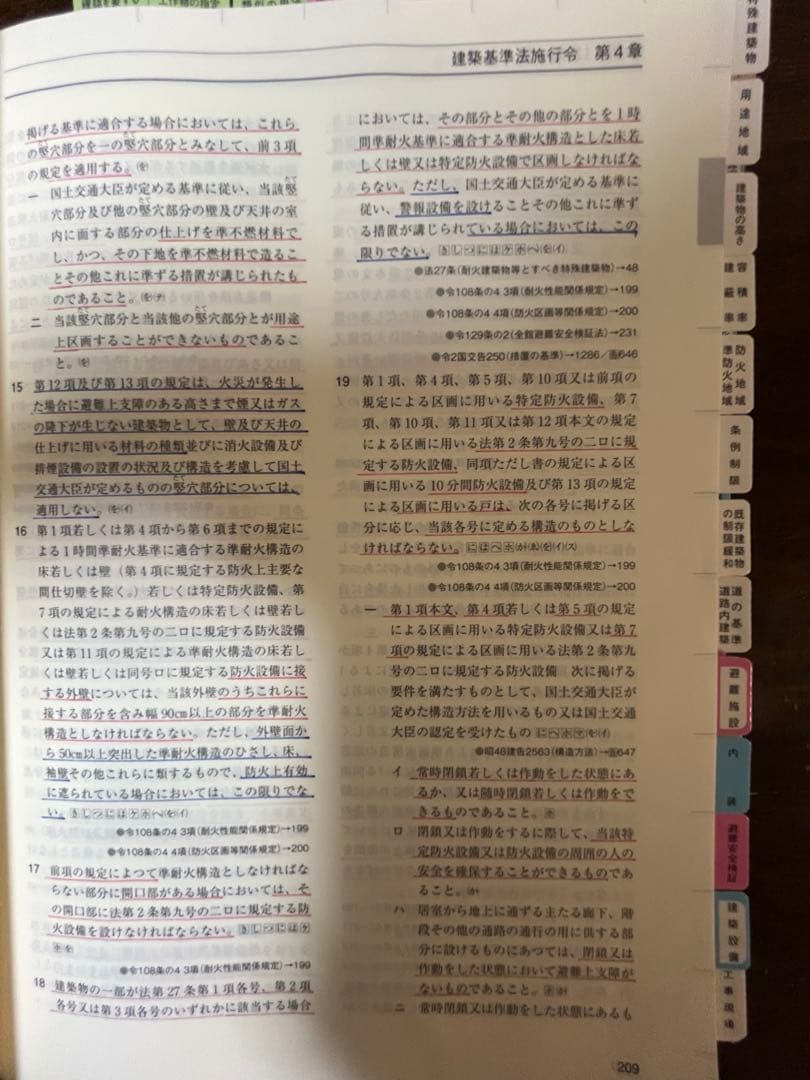 建築基準法施行令 第4章
掲げる基準に適合する場合においては、これら
の竪穴部分を一の竪穴部分とみなして、前3項
の規定を適用する。
一 国土交通大臣が定める基準に従い、当該竪
穴部分及び他の竪穴部分の壁及び天井の室
内に面する部分の仕上げを準不燃材料で
し、かつ、その下地を準不燃材料で造るこ
とその他これに準ずる措置が講じられたも
のであること。
二 当該竪穴部分と当該他の竪穴部分とが用途
上区画することができないものであるこ
と。
15 第12項及び第13項の規定は、火災が発生し
た場合に避難上支障のある高さまで煙又はガス
の降下が生じない建築物として、壁及び天井の
仕上げに用いる材料の種類並びに消火設備及び
排煙設備の設置の状況及び構造を考慮して国土
交通大臣が定めるものの竪穴部分については、
適用しない。
16 第1項若しくは第4項から第6項までの規定に
よる1時間準耐火基準に適合する準耐火構造の
床若しくは壁（第4項に規定する防火上主要な
間仕切壁を除く。）若しくは特定防火設備、第
7項の規定による耐火構造の床若しくは壁若し
くは法第2条第九号の二ロに規定する防火設備
又は第11項の規定による準耐火構造の床若し
くは壁若しくは同号ロに規定する防火設備に接
する外壁については、当該外壁のうちこれらに
接する部分を含み幅90cm以上の部分を準耐火
構造としなければならない。ただし、外壁面か
ら50cm以上突出した準耐火構造のひさし、床、
袖壁その他これらに類するもので、防火上有効
に遮られている場合においては、この限りでな
い。
●令108条の4 3項(耐火性能関係規定)→199
●令108条の4 4項(防火区画等関係規定)→200
17 前項の規定によって準耐火構造としなければな
らない部分に開口部がある場合においては、そ
の開口部に法第2条第九号の二ロに規定する防
火設備を設けなければならない。
●令108条の4 3項(耐火性能関係規定)→199
18 建築物の一部が法第27条第1項各号、第2項
各号又は第3項各号のいずれかに該当する場合
においては、その部分とその他の部分とを1時
間準耐火基準に適合する準耐火構造とした床若
しくは壁又は特定防火設備で区画しなければな
らない。ただし、国土交通大臣が定める基準に
従い、警報設備を設けることその他これに準ず
る措置が講じられている場合においては、この
限りでない。
●法27条(耐火建築物等とすべき特殊建築物)→48
●令108条の4 3項(耐火性能関係規定)→199
●令108条の4 4項(防火区画等関係規定)→200
●令129条の2(全館避難安全検証法)→231
●令2国交告250(措置の基準)→1286/画646
19 第1項、第4項、第5項、第10項又は前項の
規定による区画に用いる特定防火設備、第7
項、第10項、第11項又は第12項本文の規定
による区画に用いる法第2条第九号の二ロに規
定する防火設備、同項ただし書の規定による区
画に用いる10分間防火設備及び第13項の規定
による区画に用いる戸は、次の各号に掲げる区
分に応じ、当該各号に定める構造のものとしな
ければならない。
●令108条の4 3項(耐火性能関係規定)→199
●令108条の4 4項(防火区画等関係規定)→200
一 第1項本文、第4項若しくは第5項の規定
による区画に用いる特定防火設備又は第7
項の規定による区画に用いる法第2条第九
号の二ロに規定する防火設備 次に掲げる
要件を満たすものとして、国土交通大臣が
定めた構造方法を用いるもの又は国土交通
大臣の認定を受けたもの
●昭48建告2563(構造方法)→画647
イ 常時閉鎖若しくは作動をした状態にあ
るか、又は随時閉鎖若しくは作動をで
きるものであること。
ロ 閉鎖又は作動をするに際して、当該特
定防火設備又は防火設備の周囲の人の
安全を確保することができるものであ
ること。
ハ 居室から地上に通ずる主たる廊下、階
段その他の通路の通行の用に供する部
分に設けるものにあつては、閉鎖又は
作動をした状態において避難上支障が
ないものであること。
ニ 常時閉鎖又は作動をした状態にあるも
209
特殊建築物
用途地域
建築物の高さ
容積率
建蔽率
防火地域
準防火地域
条例制限
既存建築物
の制限緩和
道の基準
道路内建築
避難施設
内装
避難安全検証
建築設備
工事現場